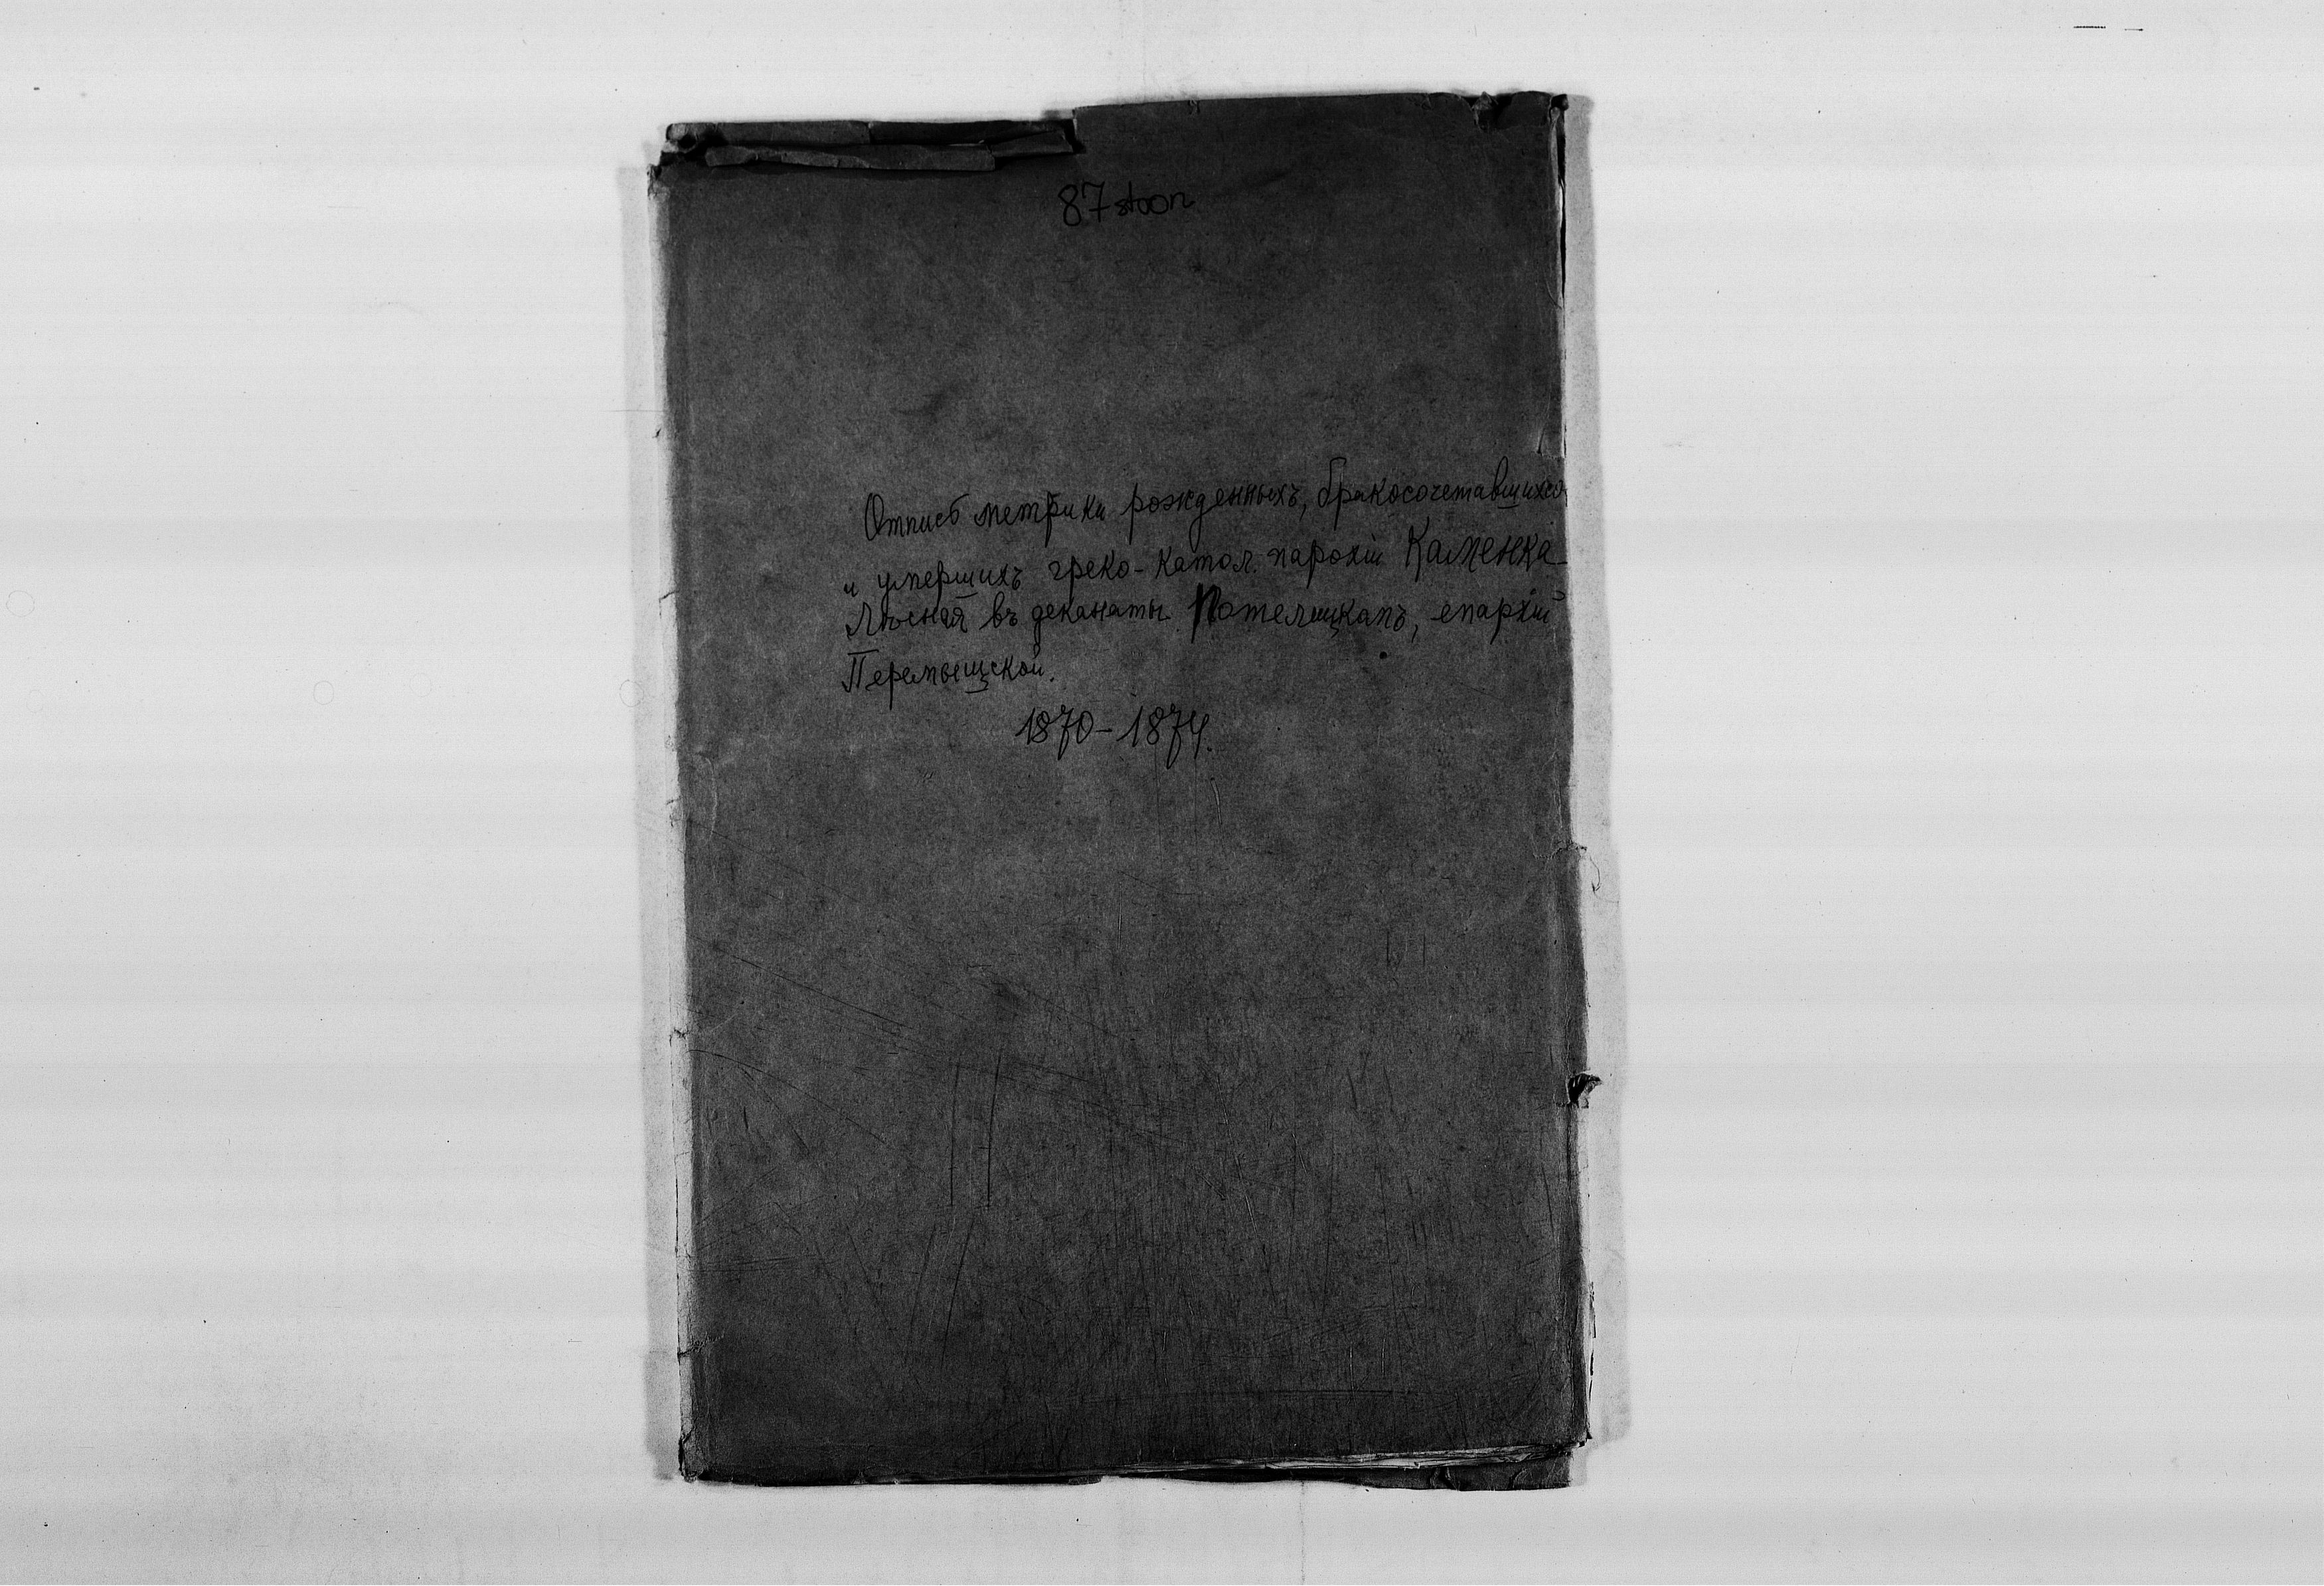 87 stron
Отписъ метрики рожденныхъ, бракосочетавшихся
и умершихъ греко-катол. парохіи Каменка
Лѣсная въ деканаты Потелицкапъ, епархіи
Перемыщской.
1870-1874.